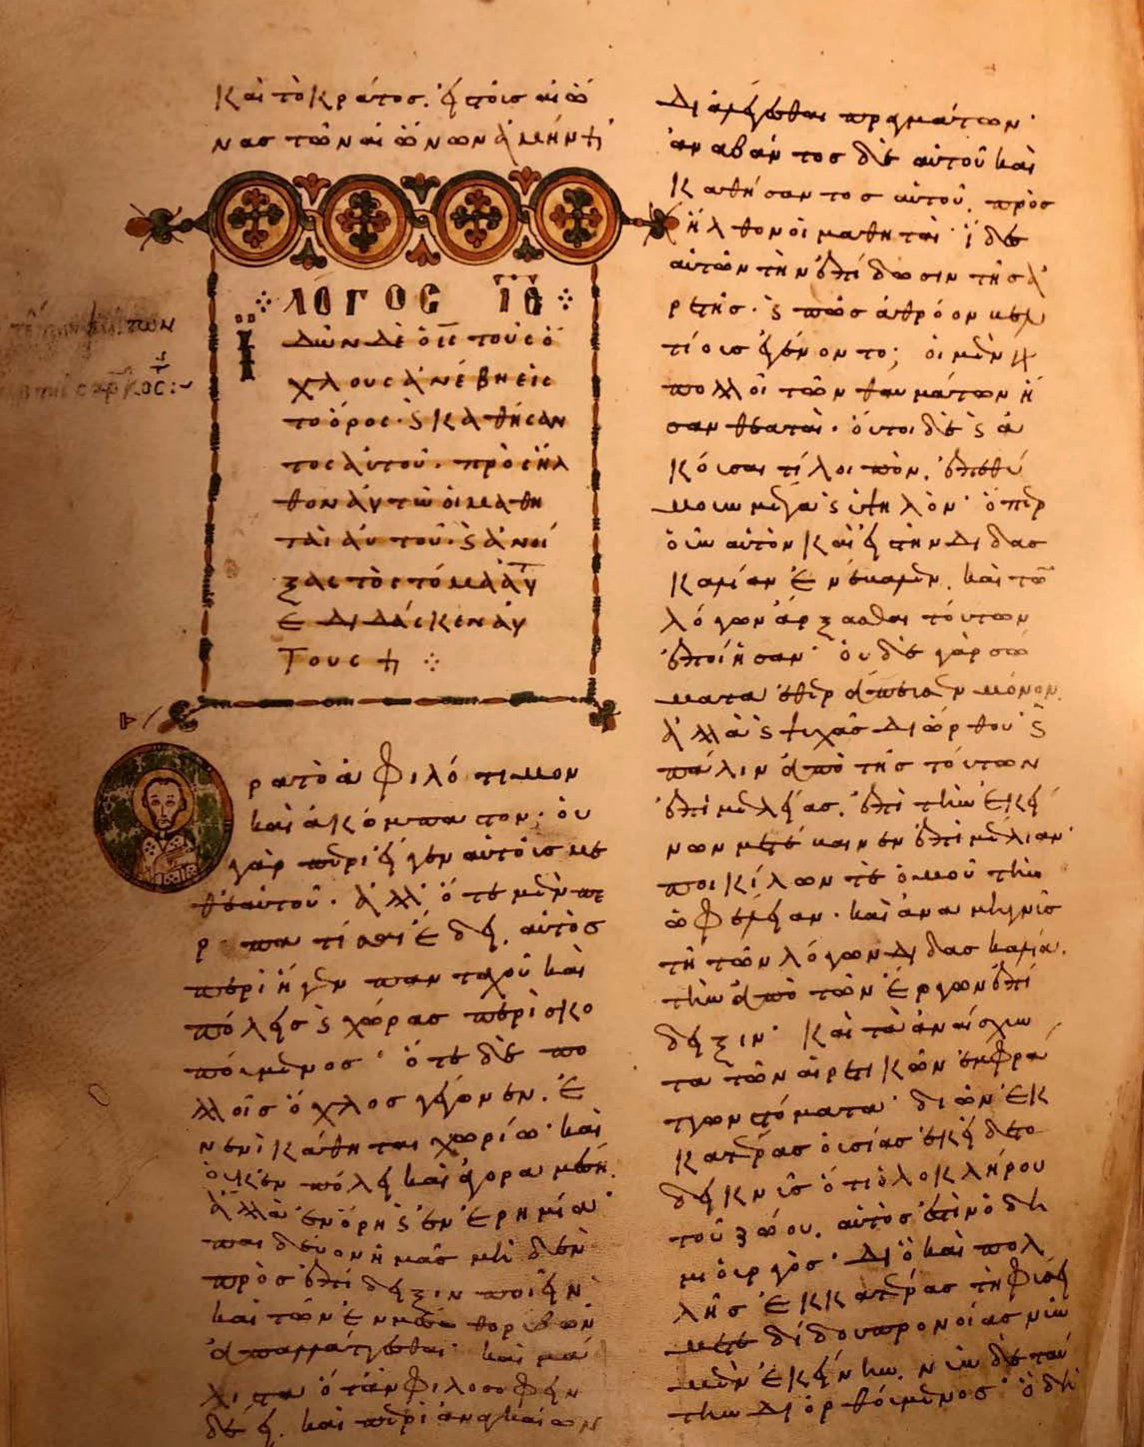 καὶ τὸ κράτος. εἰς τοὺς αἰῶ
νας τῶν αἰώνων ἀμήν
λόγος ιε
Ἰδὼν δὲ ὁ ις τοὺς ὄ
χλους ἀνέβη εἰς
τὸ ὄρος· καὶ καθήσαν
τος αὐτοῦ· προσῆλ
θον αὐτῶ οἱ μαθη
ταὶ αὐτοῦ· καὶ ἀνοί
ξας τὸ στόμα αὐτοῦ
ἐδίδασκεν αὐ
τούς
Ὅρα τὸ ἀφιλότιμον
καὶ ἀκόμπαστον· οὐ
γὰρ περιῆγεν αὐτοὺς με
θ' ἑαυτοῦ· ἀλλ' ὅτε μὲν θε
ραπεῦσαι ἔδει, αὐτὸς
περιήει πανταχοῦ καὶ
πόλεις καὶ χώρας περισκο
πούμενος· ὅτε δὲ πο
λλοὶς ὄχλος γέγονεν, ἑ
νενὶ κάθηται χωρίω· καὶ
οὐκ ἐν πόλει καὶ ἀγορα μέσῃ.
ἀλλὰ ἐν ὄρει καὶ ἐν ἐρημία·
παιδεύων ἡμᾶς μηδὲν
πρὸς ἐπίδειξιν ποιεῖν
καὶ τῶν ἐν μέσω θορύβων
ἀπαλλάττεσθαι· καὶ μά
λιστα ὅταν φιλοσοφεῖν
δέη, καὶ περὶ ἀναγκαίων
διαλέγεσθαι πραγμάτων·
ἀναβάντος δὲ αὐτοῦ καὶ
καθήσαντος αὐτοῦ, προσ
ῆλθον οἱ μαθηταί· ἴδε
αὐτῶν τὴν ἐπίδωσιν τῆς ἀ
ρετῆς· καὶ πῶς ἀθρόον βελ
τίους ἐγένοντο; οἱ μὲν γὰρ
πολλοὶ τῶν θαυμάτων ἦ
σαν θεαταί· οὗτοι δὲ καὶ ἀ
κοῦσαί τι λοιπὸν, ἐπεθύ
μουν μέγα καὶ ὑψηλόν· ὅπερ
οὖν αὐτὸν καὶ εἰς τὴν διδασ
καλίαν ἐνέβαλεν, καὶ τῶν
λόγων ἄρξασθαι τούτων
ἐποίησαν· οὐδὲ γὰρ σώ
ματα ἐθεράπευεν μόνον,
ἀλλὰ καὶ ψυχὰς διώρθου· καὶ
πάλιν ἀπὸ τῆς τούτων
ἐπιμελείας, ἐπὶ τὴν ἐκεί
νων μετέβαινεν ἐπιμέλειαν·
ποικίλων τε ὁμοῦ τὴν
ὠφέλειαν· καὶ ἀναμιγνὺς
τῆ τῶν λόγων διδασκαλία,
τὴν ἀπὸ τῶν ἔργων ἐπί
δειξιν· καὶ τὰ ἀναίσχυν
τα τῶν αἱρετικῶν ἐμφρά
ττων στόματα· δι' ὧν ἑκ
κατέρας οὐσίας ἐκήδετο
δεικνὺς ὅτι ὁλοκλήρου
τοῦ ζώου, αὐτός ἐστιν ὁ δη
μιουργός· διὸ καὶ πολ
λῆς ἑκκατέρας τῆ φύσει
μετεδίδου προνοίας νῦν
μὲν ἐκείνην, νῦν δὲ ταύ
την διορθούμενος· ὃ δὴ